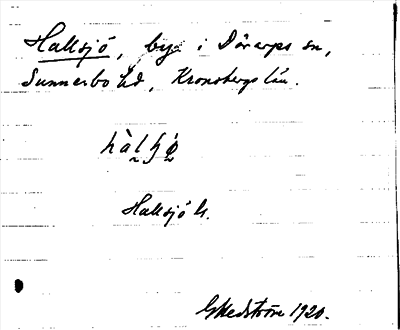 Hallsjö, by i Dörarps sn,
Sunnerbo hd, Kronobergs län.
Hallsjö h.
G Hedström 1920.